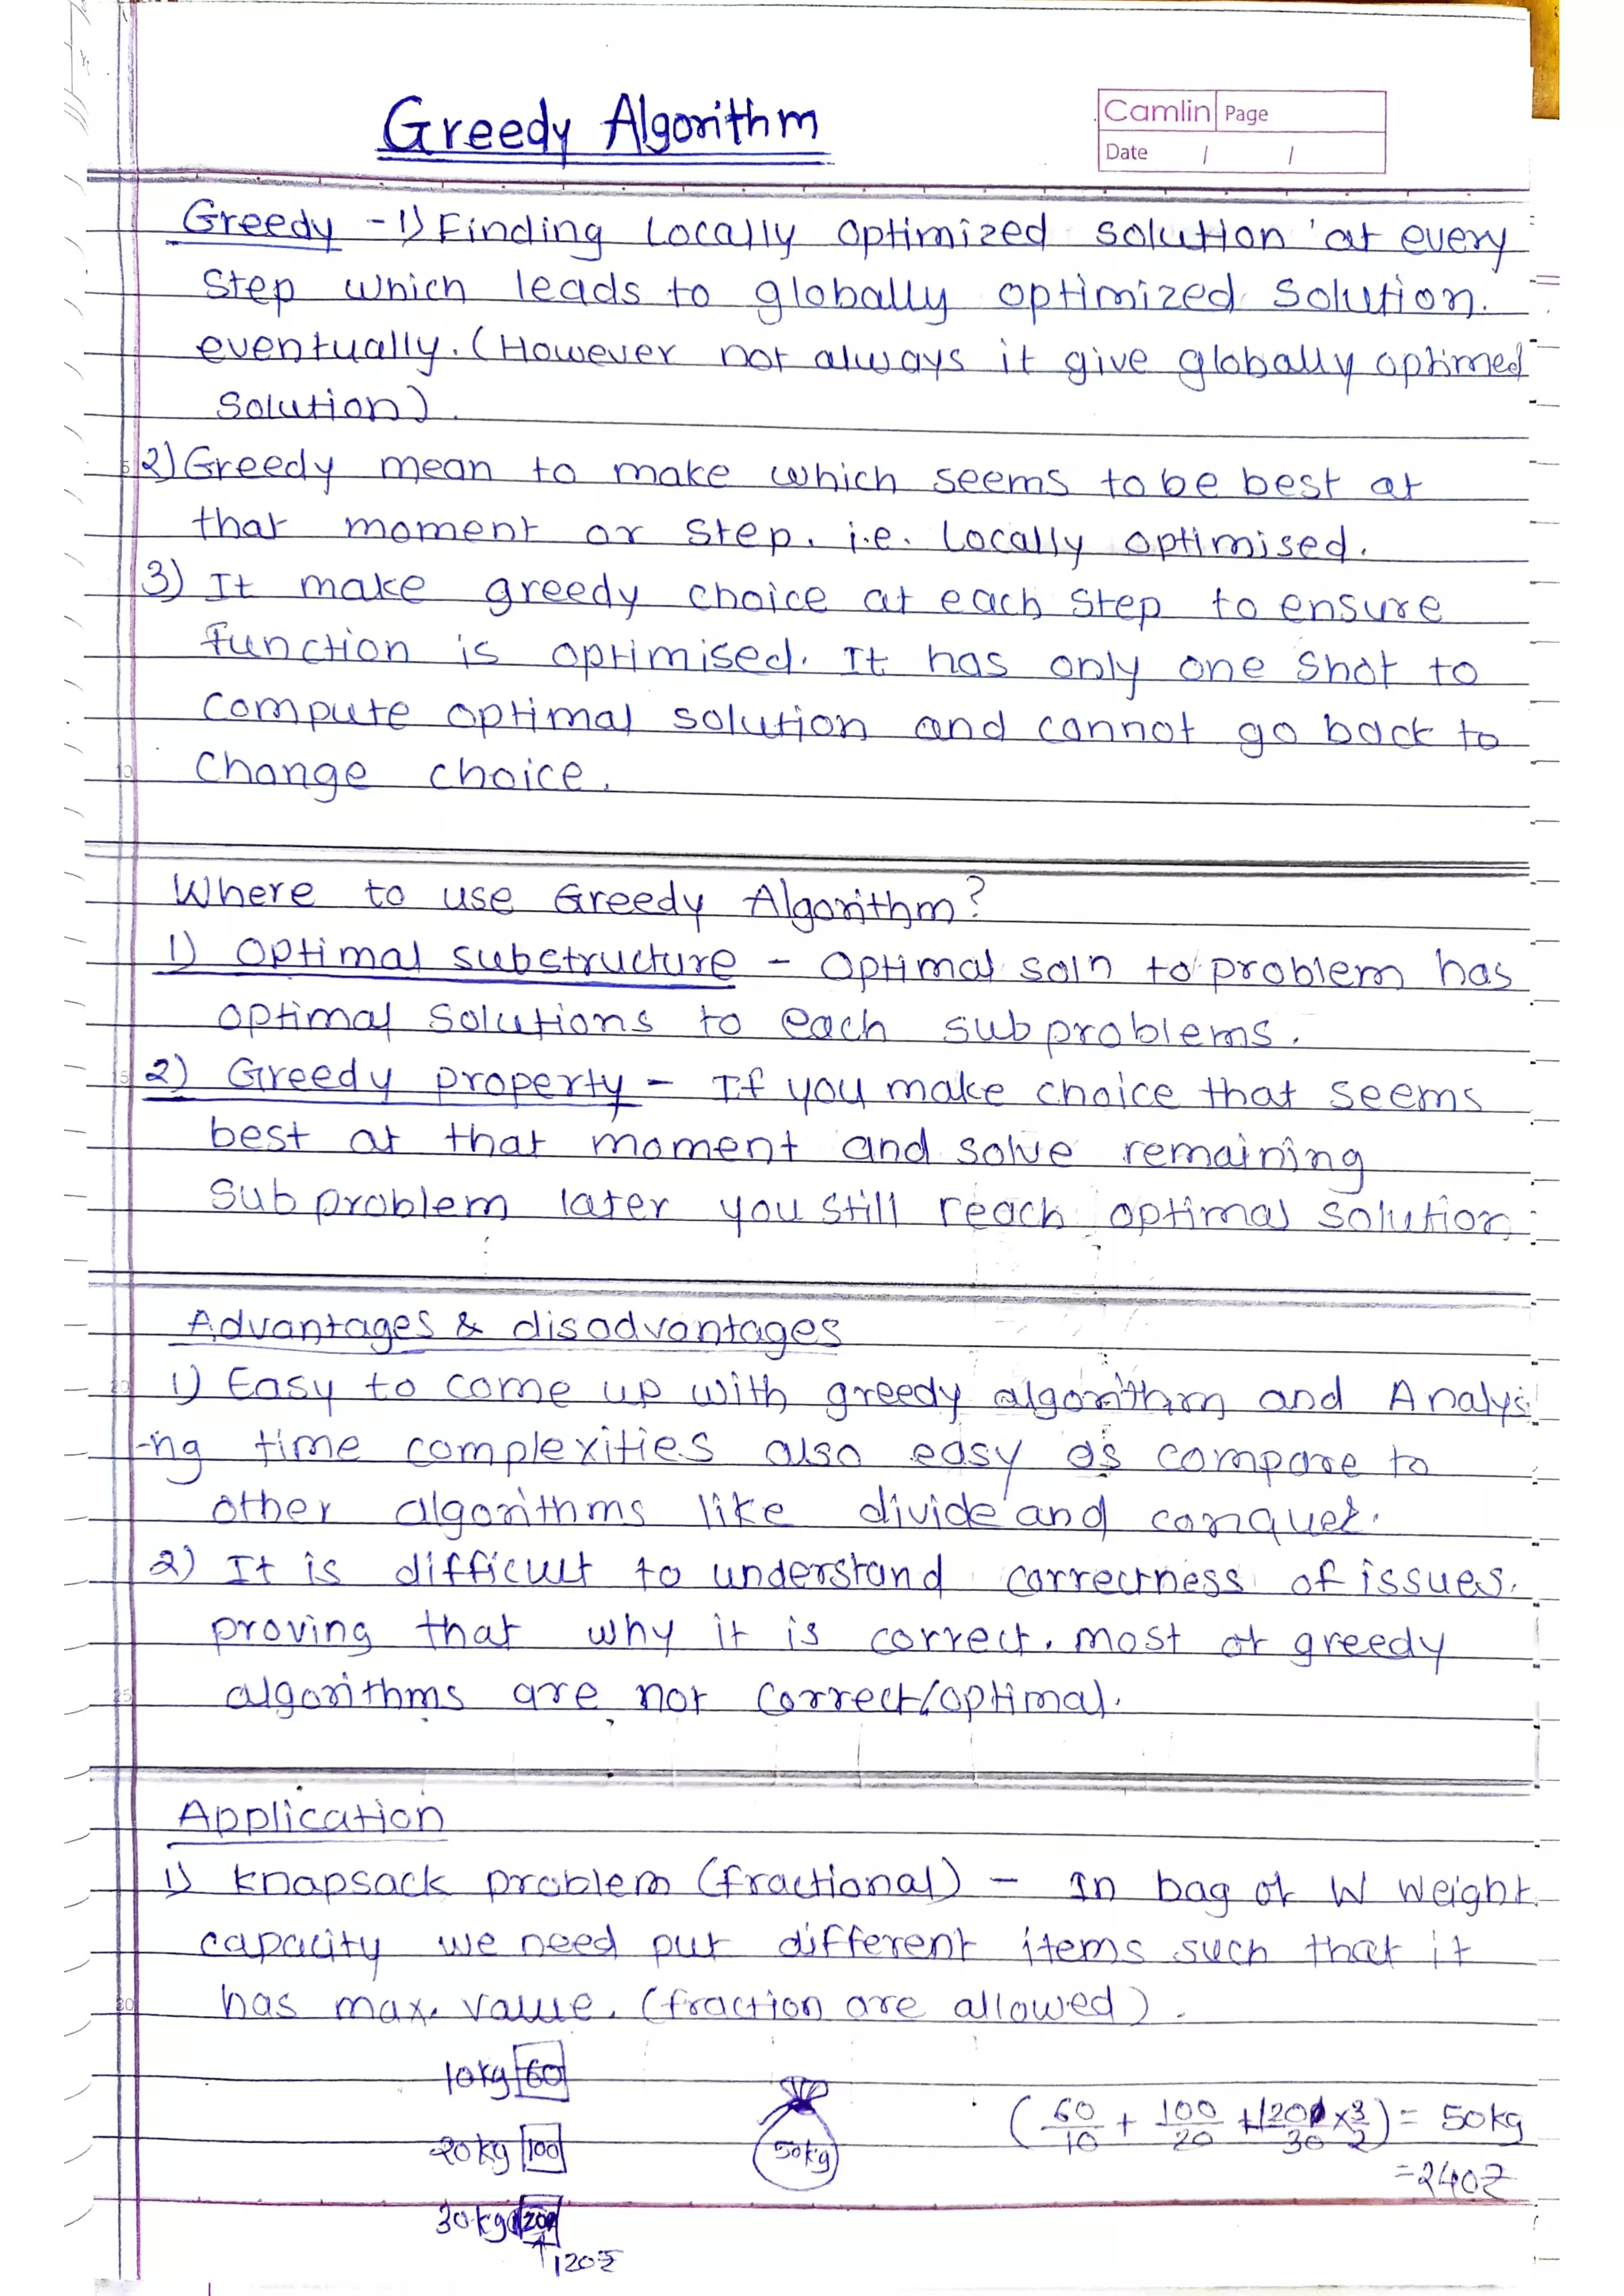 Greedy Algorithm
Camlin Page
Date / /
Greedy - 1) Finding Locally optimized solution at every
step which leads to globally optimized solution.
eventually. (However not always it give globally optimed
solution).
2) Greedy mean to make which seems to be best at
that moment or step. i.e. Locally optimised.
3) It make greedy choice at each step to ensure
function is optimised. It has only one shot to
compute optimal solution and cannot go back to
change choice.
Where to use Greedy Algorithm?
1) Optimal substructure - Optimal soln to problem has
optimal solutions to each subproblems.
2) Greedy property - If you make choice that seems
best at that moment and solve remaining
subproblem later you still reach optimal solution
Advantages & disadvantages
1) Easy to come up with greedy algorithm and Analysi
-ng time complexities also easy as compare to
other algorithms like divide and conquer.
2) It is difficult to understand correctness of issues.
proving that why it is correct. most of greedy
algorithms are not correct/optimal.
Application
1) Knapsack problem (fractional) - In bag of W weight
capacity we need put different items such that it
has max. value. (fraction are allowed).
10kg 60
20kg 100
50kg
(60/10 + 100/20 + 120/30 × 3/2) = 50kg
= 240₹
30kg 120
↑120₹